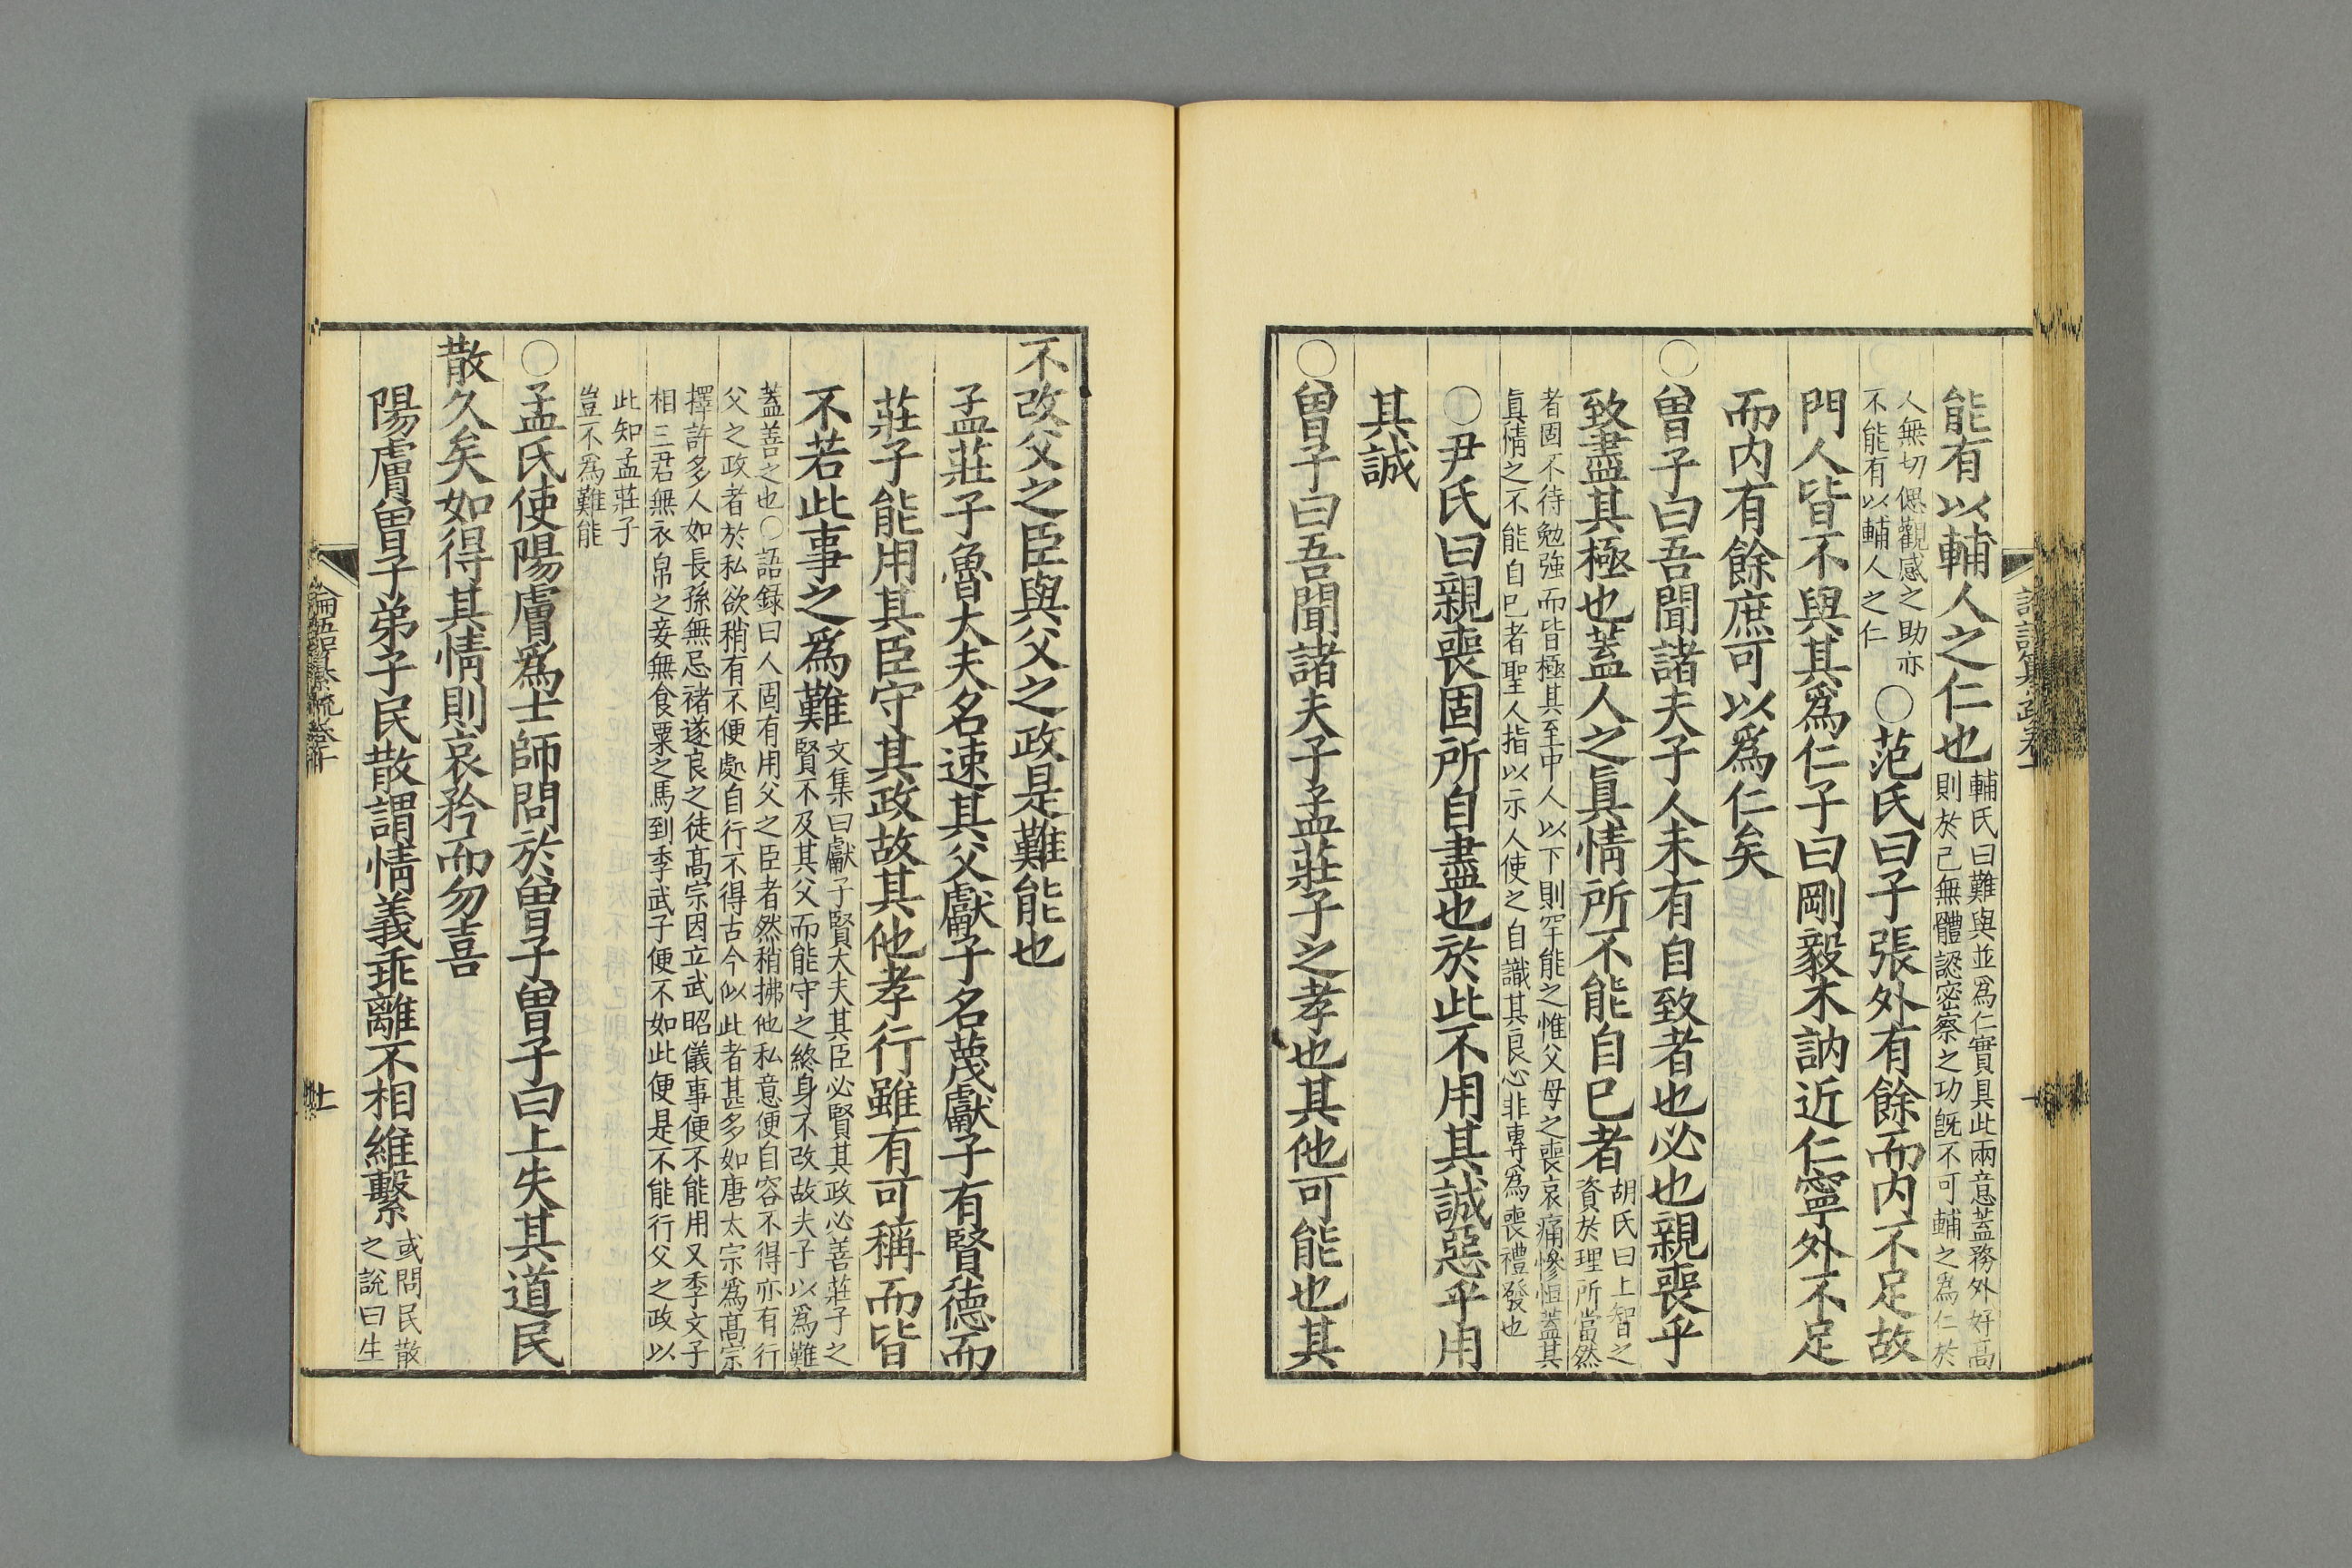 能有以輔人之仁也
輔氏曰難與並爲仁實具此兩意蓋務外好高
則於己無體認密察之功旣不可輔之爲仁於
人無切偲觀感之助亦
不能有以輔人之仁
○范氏曰子張外有餘而内不足故
門人皆不與其爲仁子曰剛毅木訥近仁寧外不足
而内有餘庶可以爲仁矣
○曽子曰吾聞諸夫子人未有自致者也必也親喪乎
致盡其極也蓋人之眞情所不能自巳者
胡氏曰上智之
資於理所當然
者固不待勉強而皆極其至中人以下則罕能之惟父母之喪哀痛慘怛蓋其
眞情之不能自巳者聖人指以示人使之自識其良心非專爲喪禮發也
○尹氏曰親喪固所自盡也於此不用其誠惡乎用
其誠
○曽子曰吾聞諸夫子孟莊子之孝也其他可能也其
不改父之臣與父之政是難能也
孟莊子魯大夫名速其父獻子名蔑獻子有賢德而
莊子能用其臣守其政故其他孝行雖有可稱而皆
不若此事之爲難
文集曰獻子賢大夫其臣必賢其政必善莊子之
賢不及其父而能守之終身不改故夫子以爲難
蓋善之也○語録曰人固有用父之臣者然稍拂他私意便自容不得亦有行
父之政者於私欲稍有不便處自行不得古今似此者甚多如唐太宗爲髙宗
擇許多人如長孫無忌禇遂良之徒髙宗因立武昭儀事便不能用又季文子
相三君無衣帛之妾無食粟之馬到季武子便不如此便是不能行父之政以
此知孟莊子
豈不爲難能
○孟氏使陽膚爲士師問於曽子曽子曰上失其道民
散久矣如得其情則哀矜而勿喜
陽膚曽子弟子民散謂情義乖離不相維繫
或問民散
之說曰生